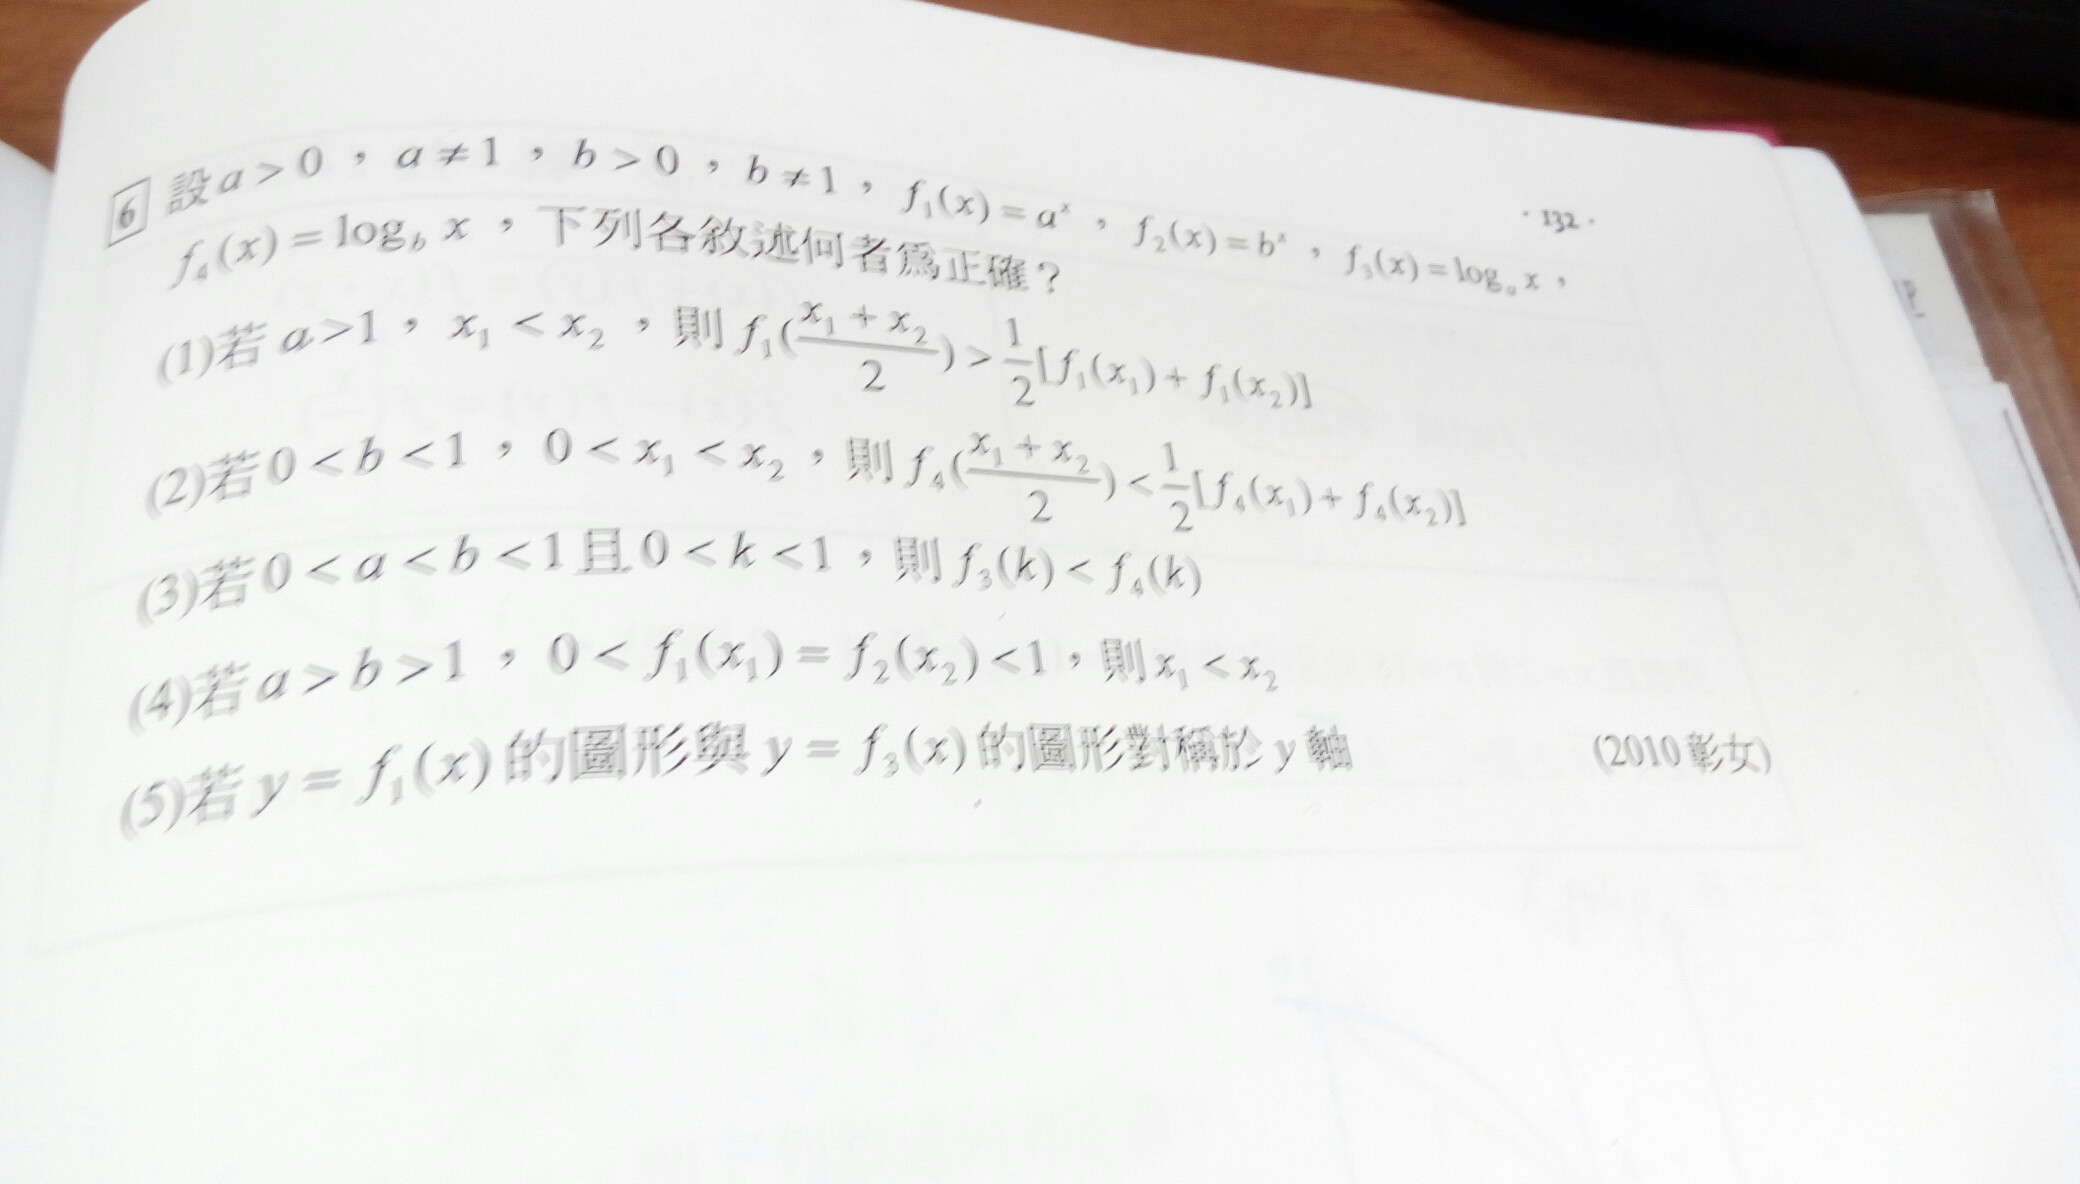 · 132 ·
6 設 a > 0，a ≠ 1，b > 0，b ≠ 1，f₁(x) = aˣ，f₂(x) = bˣ，f₃(x) = logₐ x，
f₄(x) = log_b x，下列各敘述何者爲正確？
(1)若 a > 1，x₁ < x₂，則 f₁((x₁ + x₂)/2) > 1/2[f₁(x₁) + f₁(x₂)]
(2)若 0 < b < 1，0 < x₁ < x₂，則 f₄((x₁ + x₂)/2) < 1/2[f₄(x₁) + f₄(x₂)]
(3)若 0 < a < b < 1 且 0 < k < 1，則 f₃(k) < f₄(k)
(4)若 a > b > 1，0 < f₁(x₁) = f₂(x₂) < 1，則 x₁ < x₂
(5)若 y = f₁(x) 的圖形與 y = f₃(x) 的圖形對稱於 y 軸 (2010 彰女)